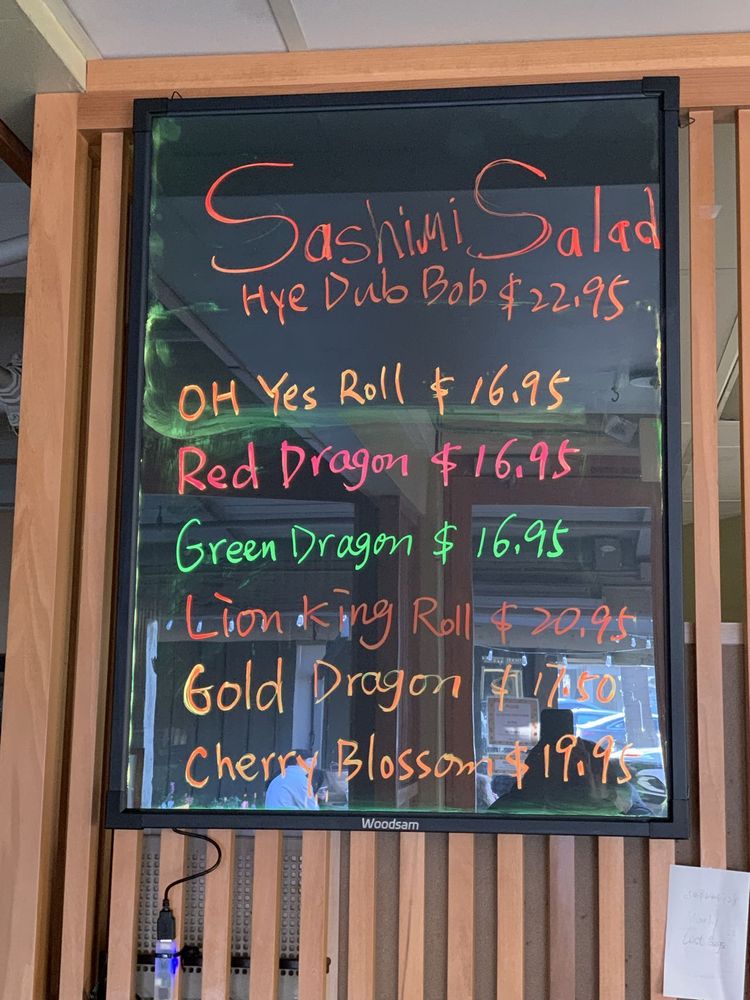 Sashimi Salad
Hye Dub Bob $22.95
OH Yes Roll $16.95
Red Dragon $16.95
Green Dragon $16.95
Lion King Roll $20.95
Gold Dragon $17.50
Cherry Blossom $19.95
Woodsam